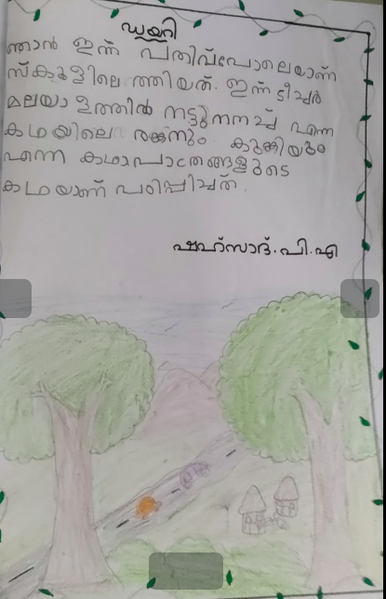 ഡയറി
ഞാൻ ഇന്ന് പതിവ്പോലെയാണ്
സ്കൂളിലെത്തിയത്. ഇന്ന് ടീച്ചർ
മലയാളത്തിൽ നട്ടുനനച്ച് എന്ന
കഥയിലെ രങ്കനും കുങ്കിയും
എന്ന കഥാപാത്രങ്ങളുടെ
കഥയാണ് പഠിപ്പിച്ചത്.
ഷഹ്സാദ്.പി.എ